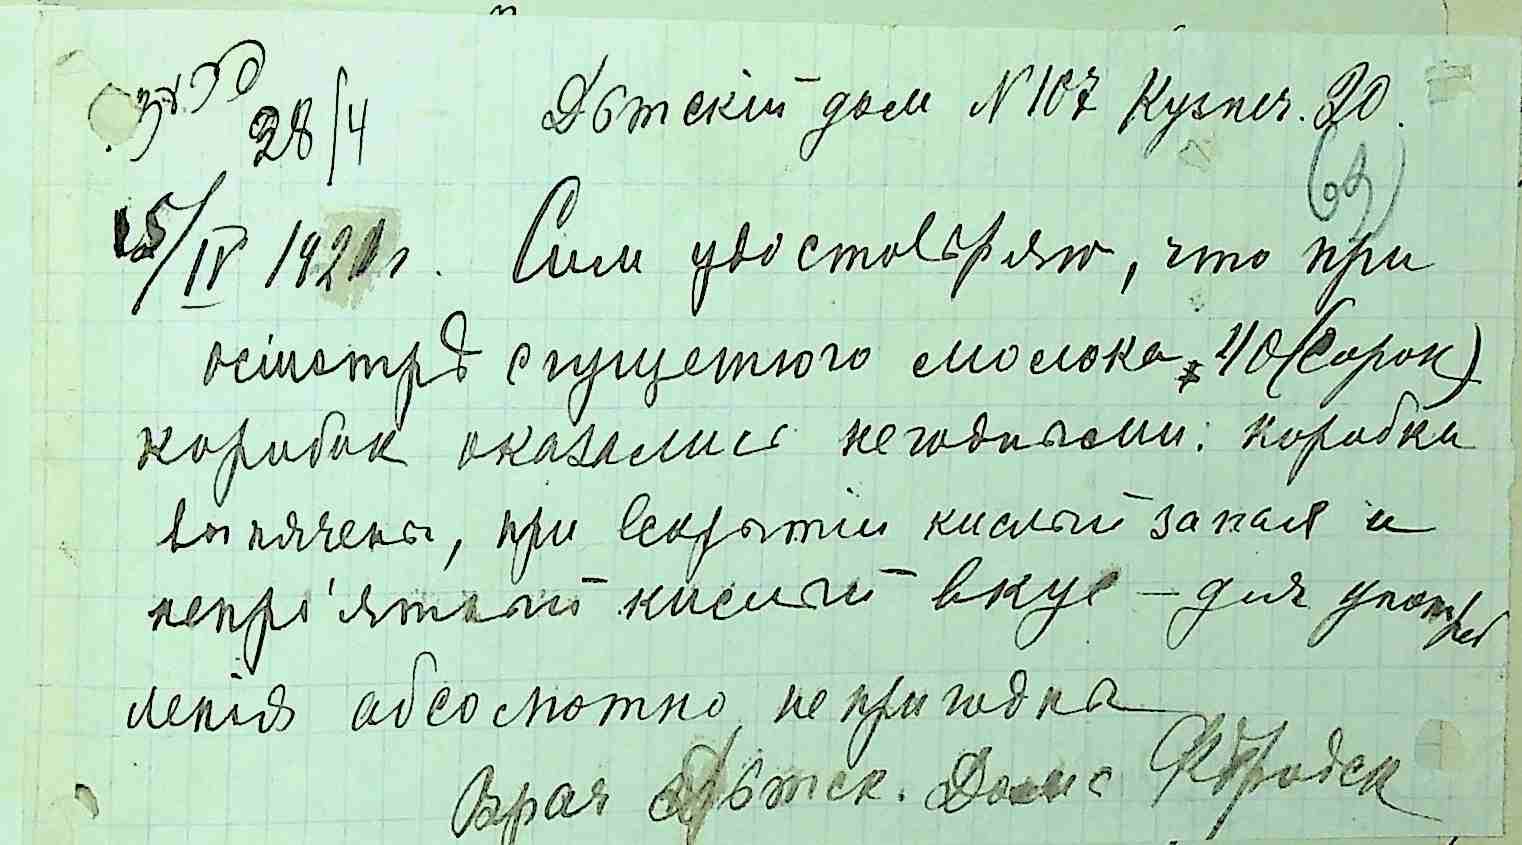 28/4
Дѣтскій дом N 107 Кузнеч. 20.
(63)
15/IV 1921 г. Сим удостовѣряю, что при
осмотрѣ сгущеного молока 40 (сорок)
коробок оказались негодными: коробки
выпячены, при вскрытіи кислый запах и
непріятный кислый вкус — для употреб
ленія абсолютно непригодна
Врач Дѣтск. Дома